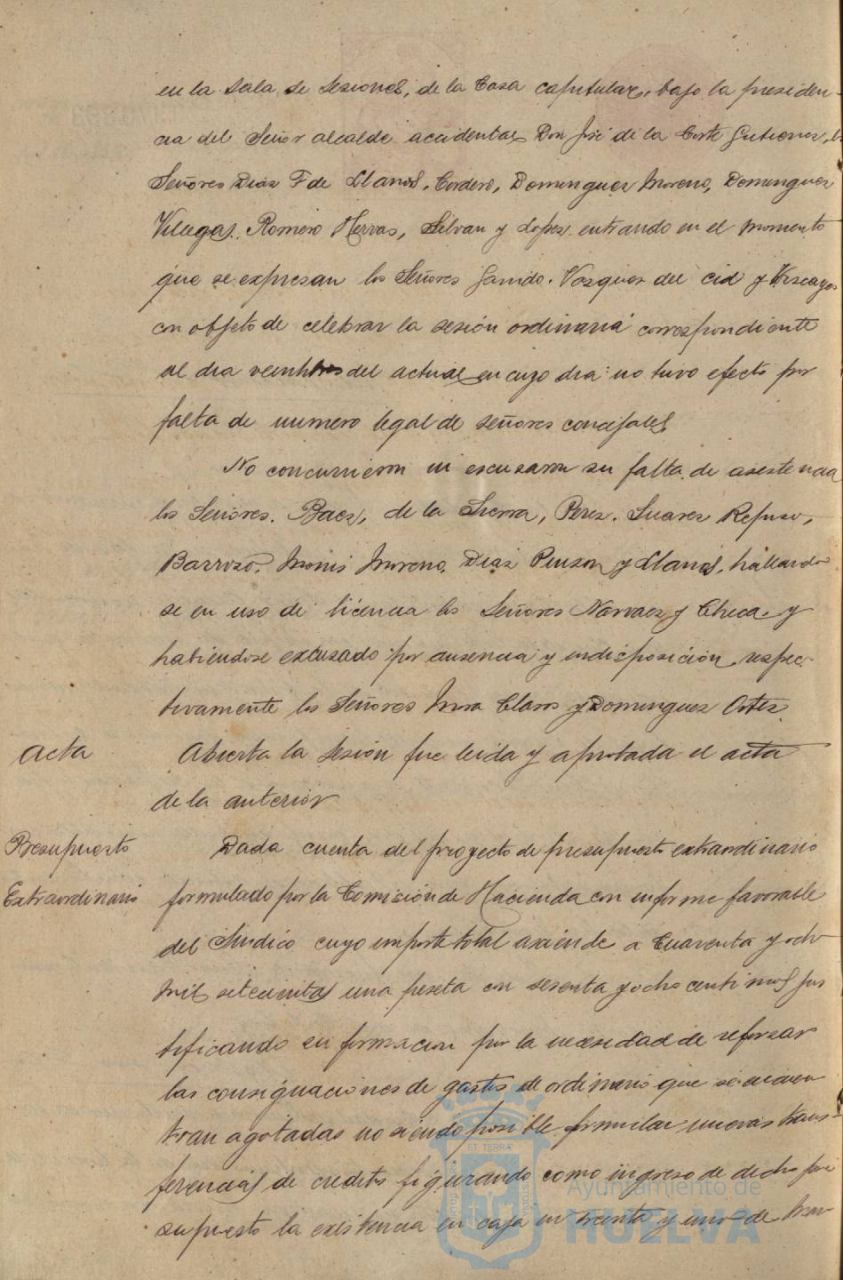 en la Sala de Sesiones, de la Casa capitular, bajo la presiden-
cia del Señor alcalde accidental Don José de la Corte Gutierrez, 
Señores Diaz F de Llanos, Cordero, Dominguez Moreno, Dominguez
Villegas. Romero Hervas, Silvan y Lopez entrando en el momento
que se expresan los Señores Garrido. Vazquez del Cid y Viscaya
con objeto de celebrar la sesión ordinaria correspondiente
al dia veintitres del actual en cuyo dia no tuvo efecto por
falta de numero legal de señores concejales
No concurrieron ni escusaron su falta de asistencia
los Señores. Baez, de la Sierra, Perez. Suarez Refuso,
Barrozo. Monis Moreno, Diaz Pinzon y Llanos, hallando
se en uso de licencia los Señores Narvaez y Checa y
habiendose excusado por ausencia y indisposición respec-
tivamente los Señores Mora Claros y Dominguez Ortiz.
Acta Abierta la Sesión fue leida y aprobada el acta
de la anterior
Presupuesto Dada cuenta del proyecto de presupuesto extraordinario
Extraordinario formulado por la Comisión de Hacienda con informe favorable
del Sindico cuyo importe total asciende a Cuarenta y ocho
mil setecientas una peseta con sesenta y ocho centimos jus
tificando su formacion por la necesidad de reforzar
las consignaciones de gastos de ordinario que se encuen
tran agotadas no siendo posible formular nuevas trans-
ferencias de credito figurando como ingreso de dicho pre
supuesto la existencia en caja en treinta y uno de
Ayuntamiento de
HUELVA